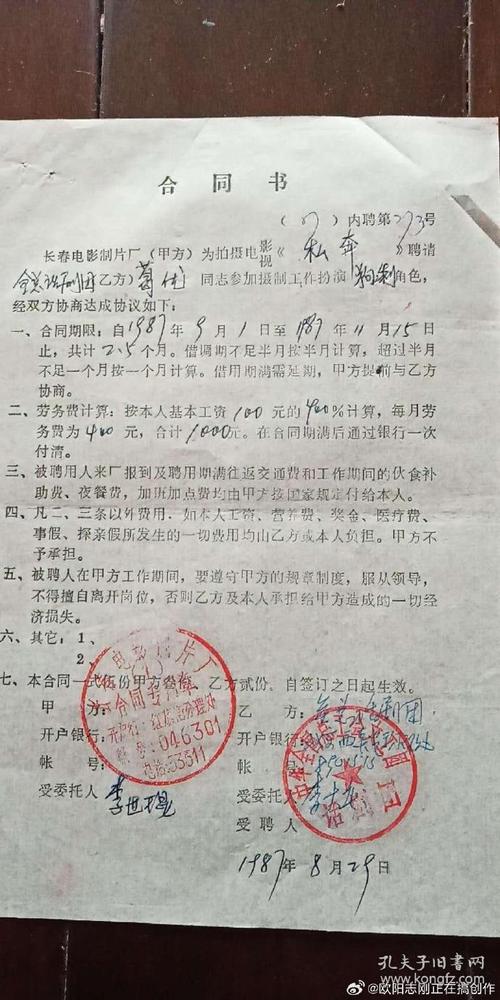 合同书
(87)内聘第273号
长春电影制片厂(甲方)为拍摄电影视《私奔》聘请
全总话剧团(乙方)葛优同志参加摄制工作扮演 角色,
经双方协商达成协议如下:
一、合同期限:自1987年9月1日至1987年11月15日
止,共计2.5个月。借调期不足半月按半月计算,超过半月
不足一个月按一个月计算。借用期满需延期,甲方提前与乙方
协商。
二、劳务费计算:按本人基本工资100元的400%计算,每月劳
务费为400元,合计1000元。在合同期满后通过银行一次
付清。
三、被聘用人来厂报到及聘用期满往返交通费和工作期间的伙食补
助费、夜餐费,加班加点费均由甲方按国家规定付给本人。
四、凡二、三条以外费用,如本人工资、营养费、奖金、医疗费、
事假、探亲假所发生的一切费用均由乙方或本人负担。甲方不
予承担。
五、被聘人在甲方工作期间,要遵守甲方的规章制度,服从领导,
不得擅自离开岗位,否则乙方及本人承担给甲方造成的一切经
济损失。
六、其它:1、
2、
七、本合同一式 份甲方叁份,乙方贰份,自签订之日起生效。
甲方:
乙方:全总话剧团
开户银行:
开户银行:
帐号:
帐号:
受委托人
受委托人
受聘人
电影制片厂
合同专用章
开户行:红旗街办理处
帐号:046301
电话:53511
中华全国总工会文工团
话剧团
1987年8月29日
孔夫子旧书网
@欧阳志刚正在搞创作